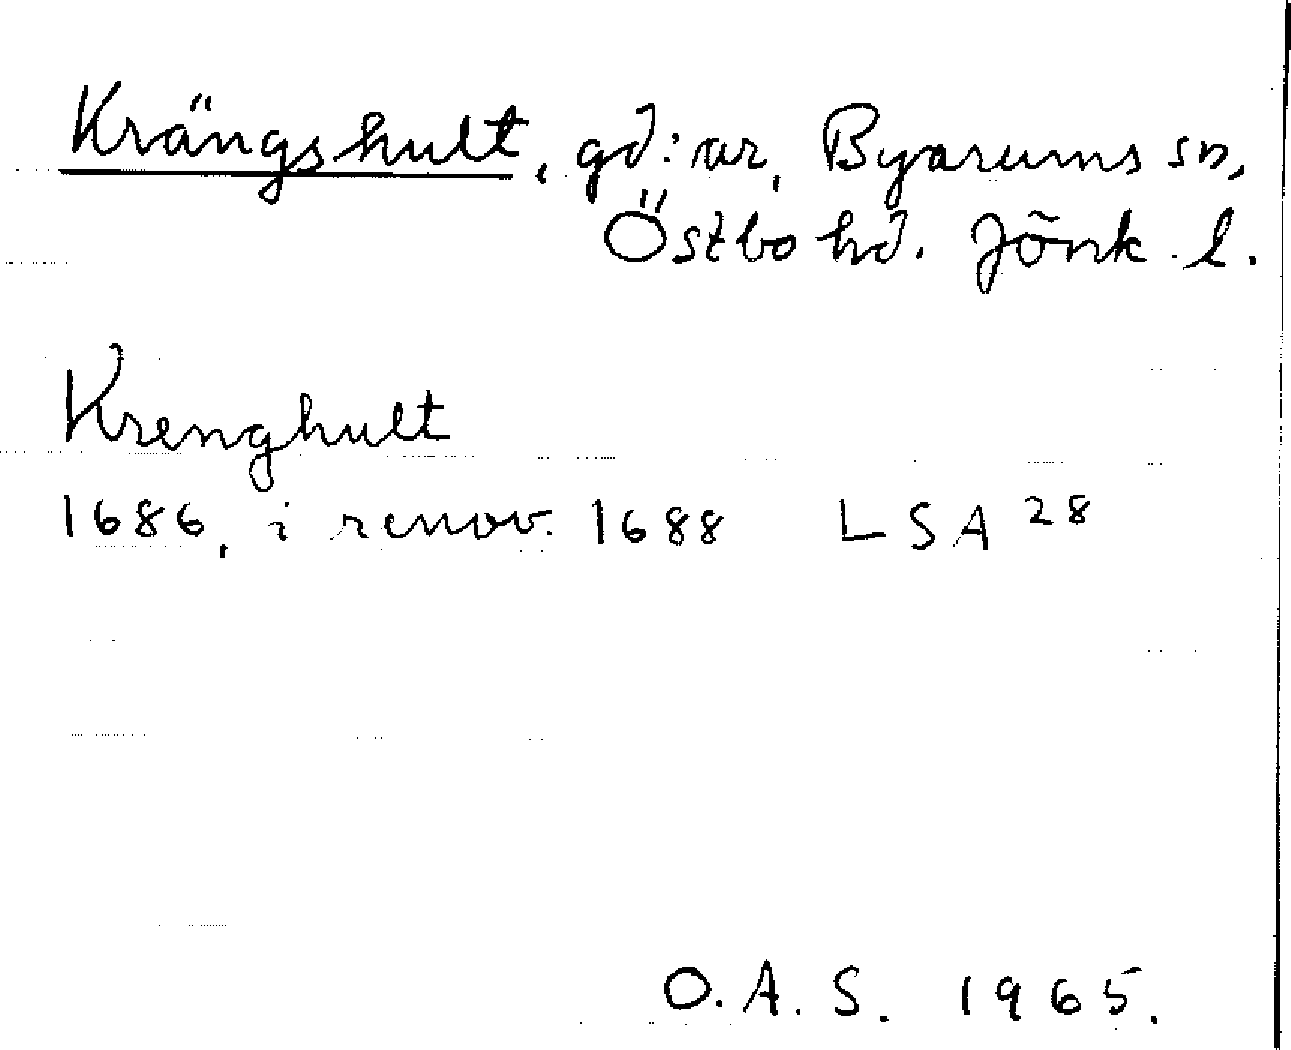 Krängshult, gd:ar, Byarums sn,
Östbo hd. Jönk. l.
Krenghult
1686, i renov. 1688 LSA 28
O.A.S. 1965.